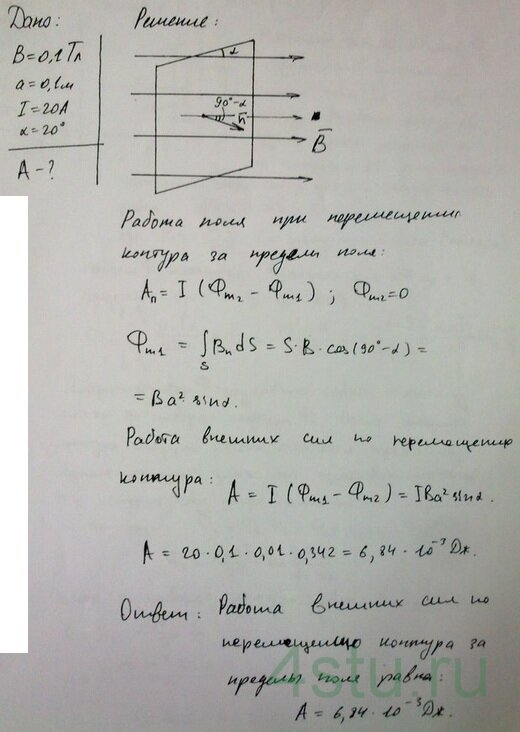 Дано:
Решение:
B=0,1 Тл
a=0,1м
I=20А
α=20°
A-?
α
90°-α
n̄
B̄
Работа поля при перемещении
контура за пределы поля:
Aп = I (Фm2 - Фm1) ; Фm2=0
Фm1 = ∫s Bn dS = S·B·cos(90°-α) =
= Ba² sinα.
Работа внешних сил по перемещению
контура: A = I (Фm1 - Фm2) = IBa² sinα.
A = 20·0,1·0,01·0,342 = 6,84·10⁻³ Дж.
Ответ: Работа внешних сил по
перемещению контура за
пределы поля равна:
A = 6,84·10⁻³ Дж.
4stu.ru